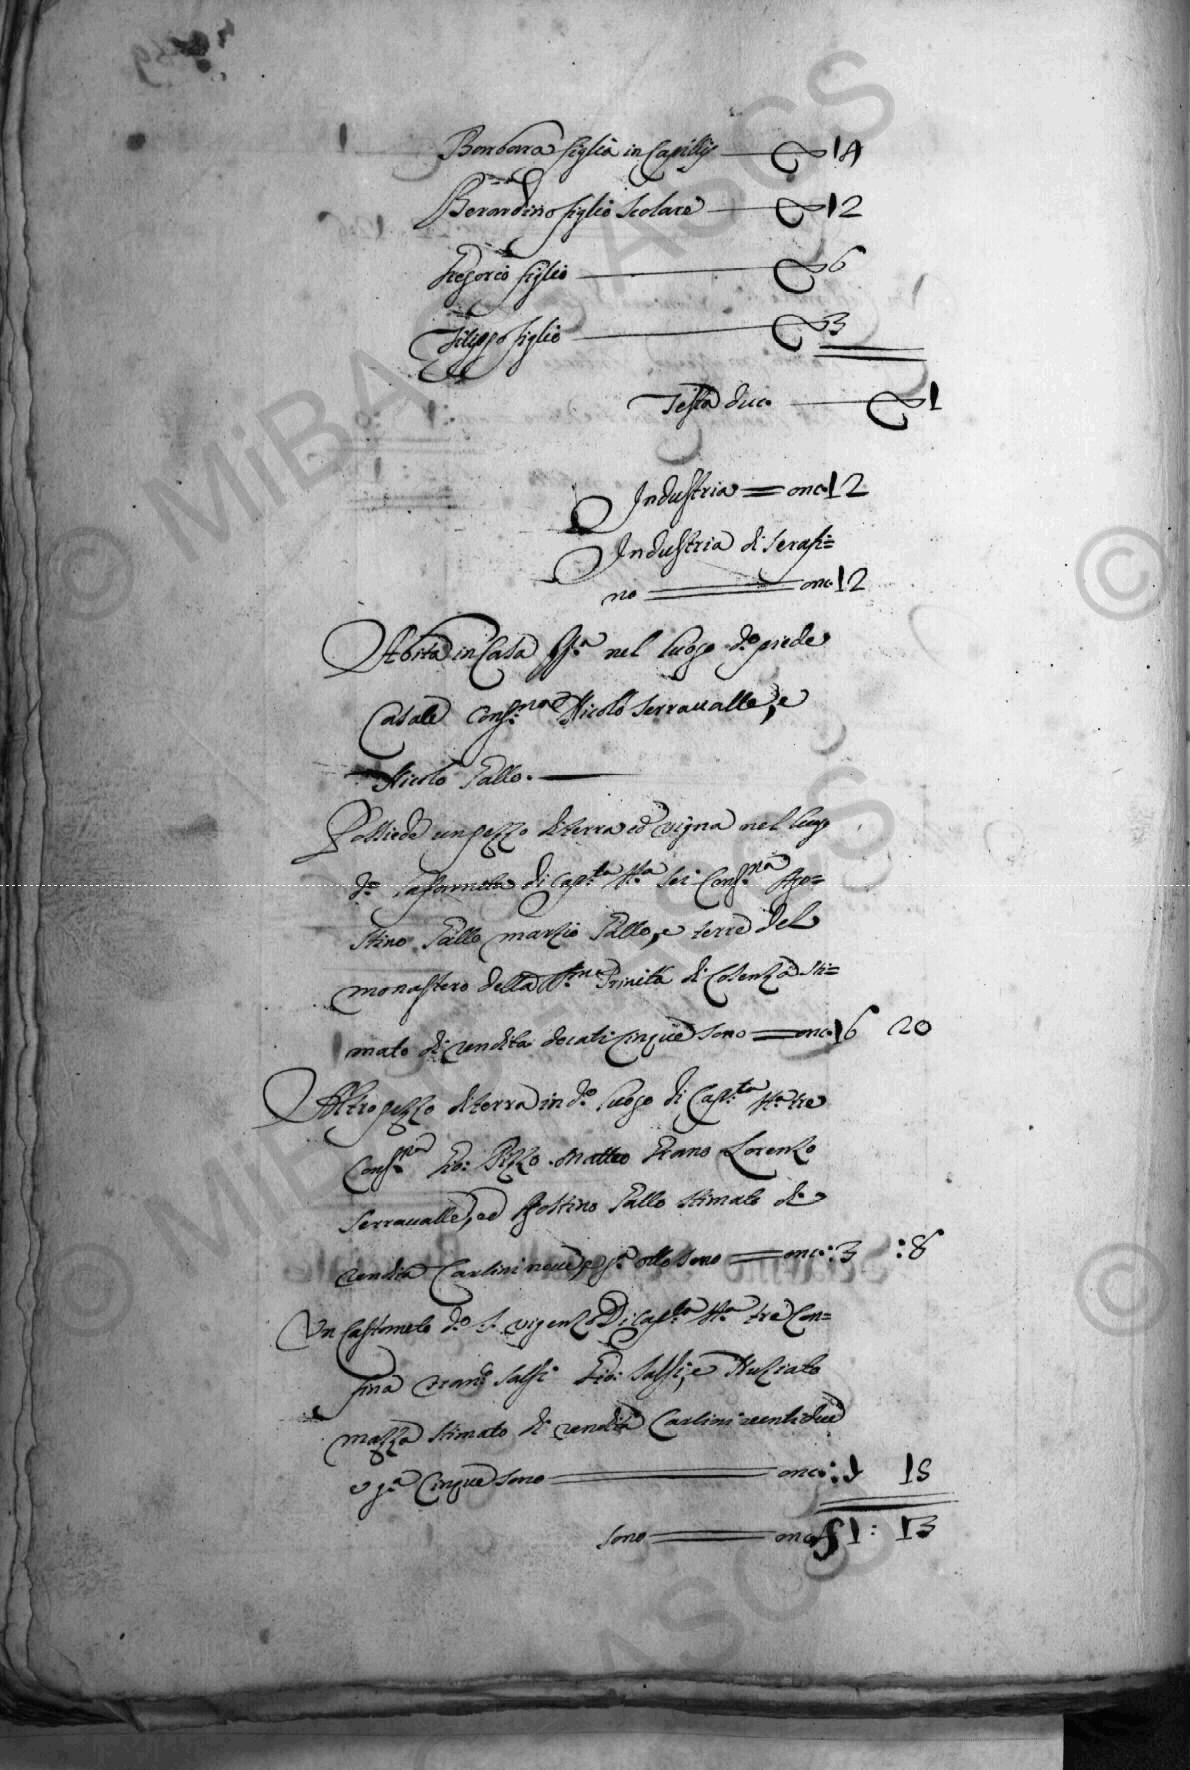 Barbara figlia in Capillis 14
Berardino figlio scolare 12
Gregorio figlio 6
Filippo figlio 3
Testa duc. 1
Industria = onc. 12
Industria di Serafi=
no = onc. 12
Abita in Casa pp.a nel luogo d.o piede
Casale Conf.na Nicolò Serravalle, e
Nicolo Gallo.
Possiede un pezzo di terra ed vigna nel luogo
d.o di Cap.ta tt.a sei Conf.na Ago=
stino Gallo marzio Gallo, e terre del
monastero della SS.ma Trinità di Cosenza sti=
mato di rendita docati cinque sono = onc. 16 20
Altro pezzo di terra in d.o luogo di Cap.ta tt.a tre
Conf.na Gio: Rizzo Matteo Grano Lorenzo
Serravalle, ed Agostino Gallo stimato di
rendita Carlini nove, e g.a otto sono = onc.: 3 :8
Un Castaneto d.o S. Vigenzo Di Cap.ta tt.a tre Con=
fina Salfi Gio: Salfi, e Nuziato
mazza stimato di rendita Carlini ventidue
e g.a Cinque sono = onc.: 15
sono = onc. 51: 13
© MiBAC - ASCS
© MiBAC - ASCS